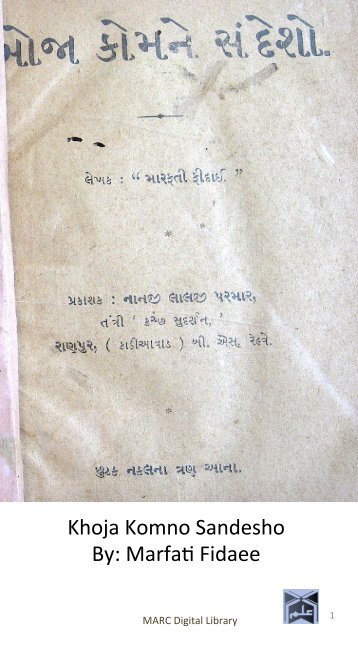 ખોજા કોમને સંદેશો.
લેખક : “ મારફતી ફીદાઈ. ”
*
પ્રકાશક : નાનજી લાલજી પરમાર,
તંત્રી ‘ કચ્છ સુદર્શન, ’
રાણપુર, ( કાઠીઆવાડ ) બી. એસ. રેલ્વે.
*
છુટક નકલના ત્રણ આના.
Khoja Komno Sandesho
By: Marfati Fidaee
علم
MARC Digital Library
1